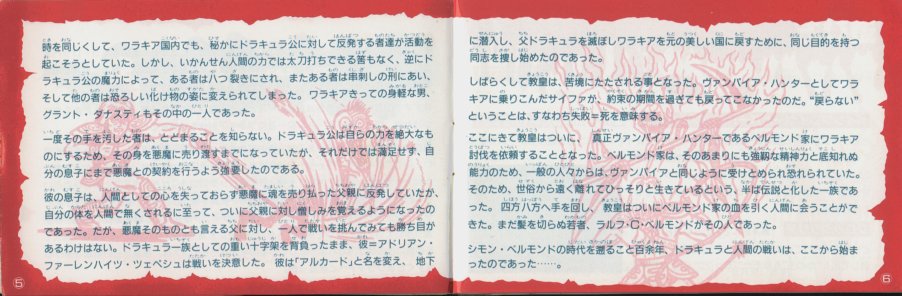 時を同じくして、ワラキア国内でも、秘かにドラキュラ公に対して反発する者達が活動を
起こそうとしていた。しかし、いかんせん人間の力では太刀打ちできる筈もなく、逆にド
ラキュラ公の魔力によって、ある者は八つ裂きにされ、またある者は串刺しの刑にあい、
そして他の者は恐ろしい化け物の姿に変えられてしまった。ワラキアきっての身軽な男、
グラント・ダナスティもその中の一人であった。
一度その手を汚した者は、とどまることを知らない。ドラキュラ公は自らの力を絶大なも
のにするため、その身を悪魔に売り渡すまでになっていたが、それだけでは満足せず、自
分の息子にまで悪魔との契約を行うよう強要したのである。
彼の息子は、人間としての心を失っておらず悪魔に魂を売り払った父親に反発していたが、
自分の体を人間で無くされるに至って、ついに父親に対し憎しみを覚えるようになったの
であった。だが、悪魔そのものとも言える父に対し、一人で戦いを挑んでみても勝ち目が
あるわけはない。ドラキュラ一族としての重い十字架を背負ったまま、彼=アドリアン・
ファーレンハイツ・ツェペシュは戦いを決意した。 彼は「アルカード」と名を変え、 地下
5
に潜入し、父ドラキュラを滅ぼしワラキアを元の美しい国に戻すために、同じ目的を持つ
同志を捜し始めたのであった。
しばらくして教皇は、苦境にたたされる事となった。ヴァンパイア・ハンターとしてワラ
キアに乗りこんだサイファが、約束の期間を過ぎても戻ってこなかったのだ。“戻らない”
ということは、すなわち失敗=死を意味する。
ここにきて教皇はついに、 真正ヴァンパイア・ハンターであるベルモンド家にワラキア
討伐を依頼することとなった。ベルモンド家は、そのあまりにも強靭な精神力と底知れぬ
能力のため、一般の人々からは、ヴァンパイアと同じように受けとめられ恐れられていた。
そのため、世俗から遠く離れてひっそりと生きているという、半は伝説と化した一族であ
った。 四方八方へ手を回し、 教皇はついにベルモンド家の血を引く人間に会うことがで
きた。まだ髪を切らぬ若者、ラルフ・C・ベルモンドがその人であった。
シモン・ベルモンドの時代を遡ること百余年、ドラキュラと人間の戦いは、ここから始ま
ったのであった……。
6